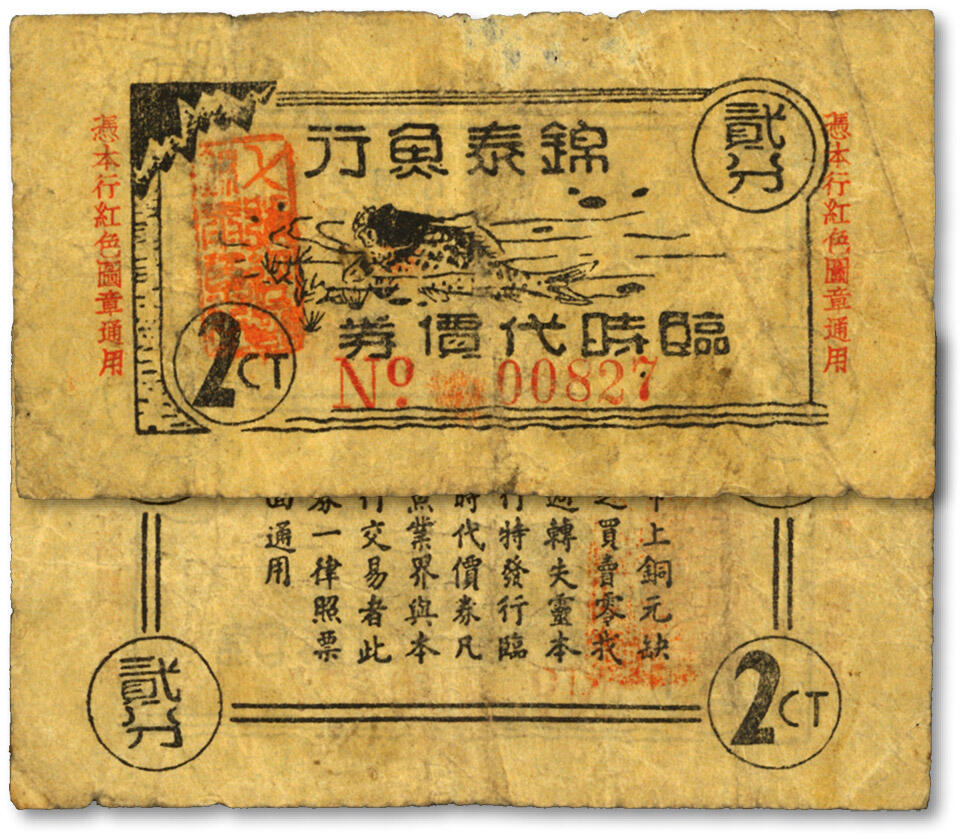 錦泰魚行
貳分
憑本行紅色圖章通用
憑本行紅色圖章通用
臨時代價券
2CT
No. 00827
市上銅元缺
乏買賣零找
週轉失靈本
行特發行臨
時代價券凡
魚業界與本
行交易者此
券一律照票
面通用
貳分
2CT